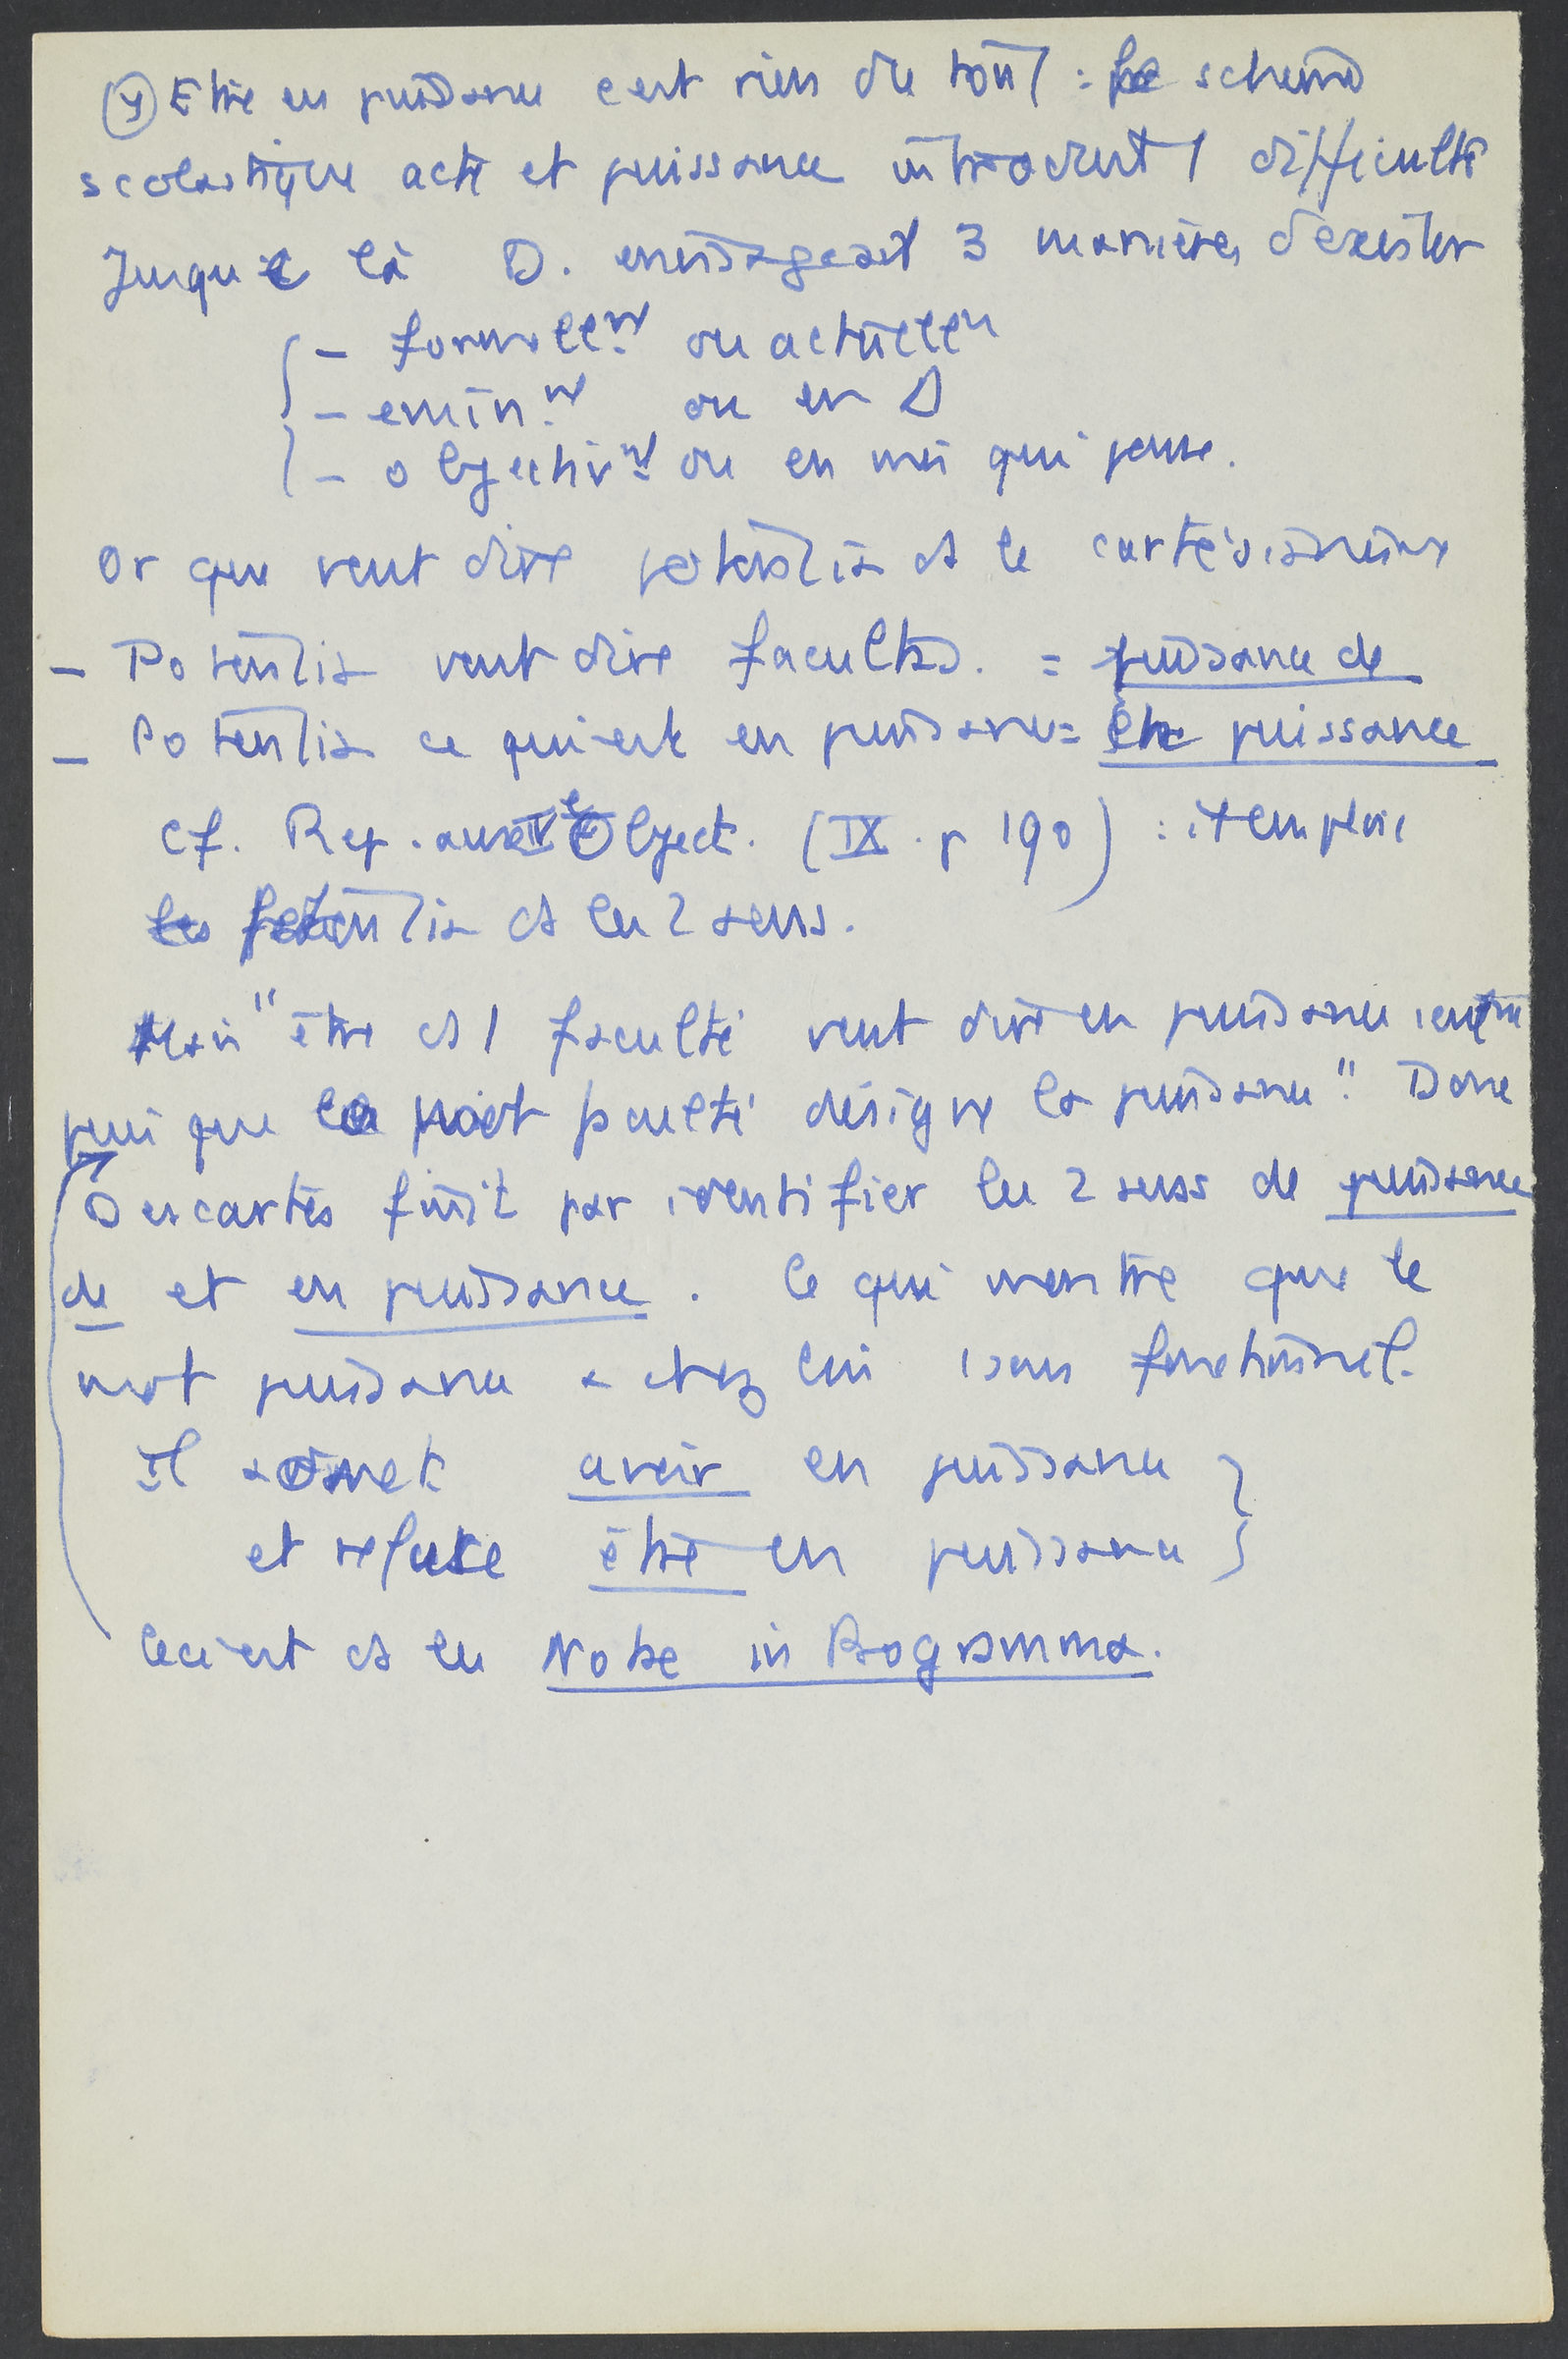 (y) Etre en puissance c'est rien du tout : le schéma
scolastique acte et puissance introduit 1 difficulté
Jusque là D. envisageait 3 manières d'exister
- formellemt ou actuellemt
- emin.mt ou en Δ
- objectivmt ou en moi qui pense.
Or que veut dire potentia ds le cartésianisme
- Potentia veut dire facultas. = puissance de
- Potentia ce qui est en puissance = être puissance
cf. Rep. aux Ve Object. (IX. p 190) : il emploie
potentia ds les 2 sens.
Mais "être ds 1 faculté veut dire en puissance
puisque le mot faculté désigne la puissance". Donc
Descartes finit par identifier les 2 sens de puissance
de et en puissance. Ce qui montre que le
mot puissance a chez lui 1 sens fonctionnel.
Il admet avoir en puissance
et refuse être en puissance
Ceci est ds les Notae in Programma.